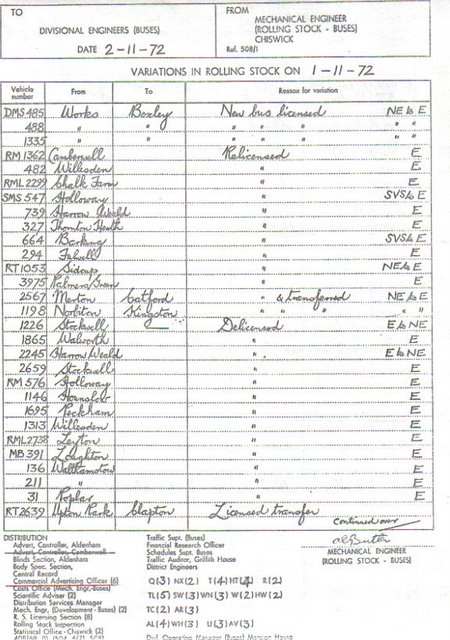 TO
DIVISIONAL ENGINEERS (BUSES)
DATE 2-11-72
FROM
MECHANICAL ENGINEER
(ROLLING STOCK - BUSES)
CHISWICK
Ref. 508/1
VARIATIONS IN ROLLING STOCK ON 1-11-72
Vehicle number From To Reason for variation
DMS 485 Works Bexley New bus licensed NE to E
488 " " " " " " "
1335 " " " " " " "
RM 1362 Camberwell Relicensed E
482 Willesden " E
RML 2299 Chalk Farm " E
SMS 547 Holloway " SVS to E
739 Harrow Weald " E
327 Thornton Heath " E
664 Barking " SVS to E
294 Fulwell " E
RT 1053 Sidcup " NE to E
3975 Palmers Green " E
2567 Merton Catford " & transferred NE to E
1198 Norbiton Kingston " " " E
1226 Stockwell Delicensed E to NE
1865 Walworth " E
2245 Harrow Weald " E to NE
2659 Stockwell " E
RM 576 Holloway " E
1146 Hounslow " E
1695 Peckham " E
1313 Willesden " E
RML 2738 Leyton " E
MB 391 Loughton " E
136 Walthamstow " E
211 " " E
31 Poplar " E
RT 2639 Upton Park Clapton Licensed transfer E
Continued over
MECHANICAL ENGINEER
(ROLLING STOCK - BUSES)
DISTRIBUTION
Advert. Controller, Aldenham
Advert. Controller, Camberwell
Blinds Section, Aldenham
Body Spec. Section,
Central Record
Commercial Advertising Officer (6)
Costs Office (Mech. Engr.-Buses)
Scientific Adviser
Distribution Services Manager
Mech. Engr. (Development-Buses) (2)
R. S. Licensing Section (8)
Rolling Stock Inspector
Statistical Office - Chiswick (2)
Traffic Supt. (Buses)
Financial Research Officer
Schedules Supt. Buses
Traffic Auditor, Griffith House
District Engineers
Q (3) NX (2) T (4) HT (4) R (2)
TL (5) SW (3) WN (3) W (2) HW (2)
TC (2) AR (3)
AL (4) WH (3) U (3) AV (3)
Divl. Operating Manager (Buses) Mansion House